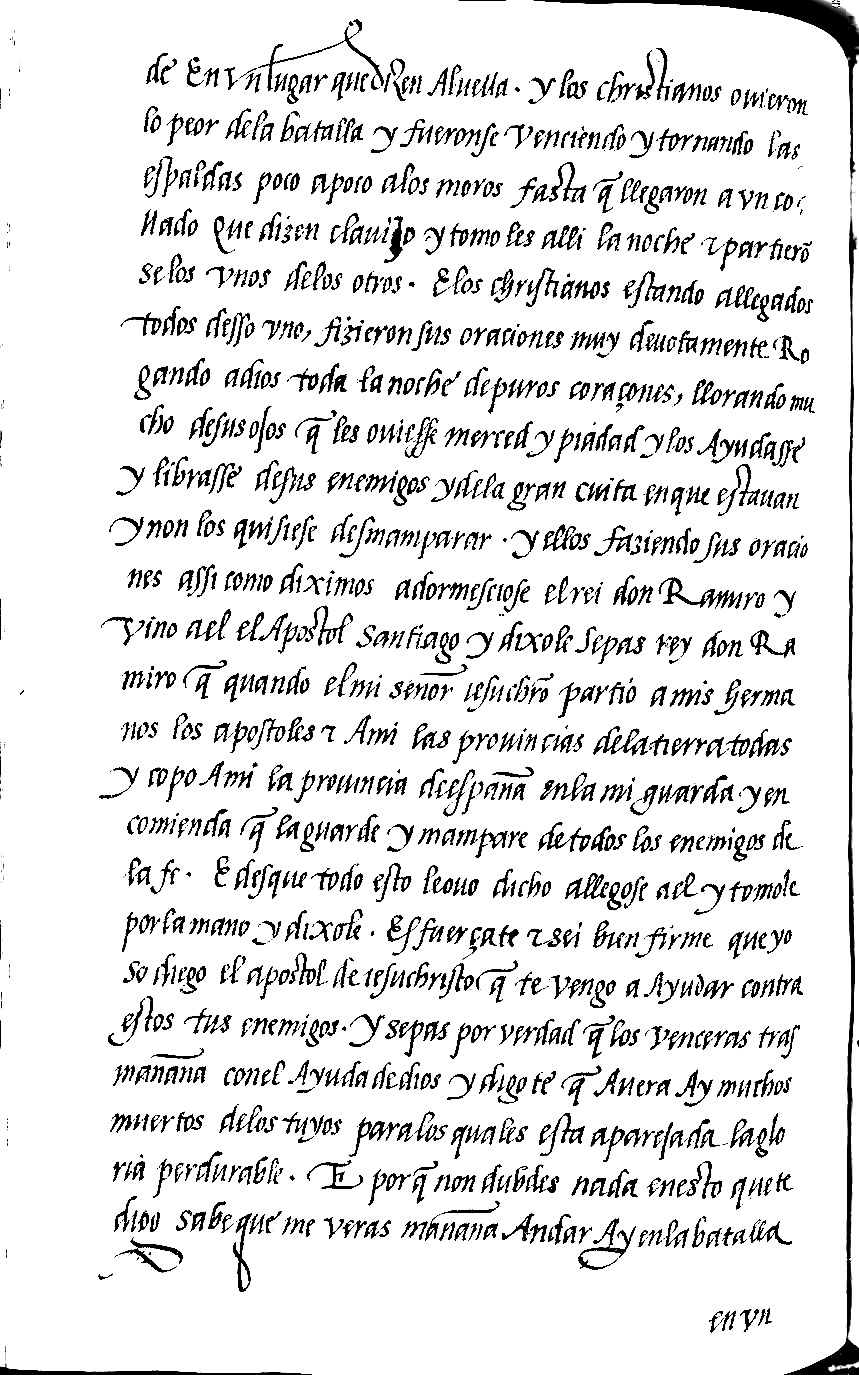 de En vn lugar que dizen Aluella . y los christianos ouieron
lo peor dela batalla y fueronse venciendo y tornando las
espaldas poco apoco alos moros fasta q̃ llegaron a vn co
llado que dizen clauijo y tomoles alli la noche ⁊ partierõ
se los vnos delos otros . E los christianos estando allegados
todos desso vno, fizieron sus oraciones muy deuotamente Ro
gando adios toda la noche de puros coraçones, llorando mu
cho desus ojos q̃ les ouiesse merced y piadad y los Ayudasse
y librasse desus enemigos y dela gran cuita en que estauan
y non los quisiese desmamparar . y ellos faziendo sus oracio
nes assi como diximos adormesciose el rei don Ramiro y
vino ael el Apostol Santiago y dixole Sepas rey don Ra
miro q̃ quando el mi señor iesuchr̃o partio a mis herma
nos los apostoles ⁊ Ami las prouincias dela tierra todas
y copo Ami la prouincia de españa en la mi guarda y en
comienda q̃ la guarde y mampare de todos los enemigos de
la fe . E desque todo esto le ouo dicho allegose ael y tomole
por la mano y dixole . Esfuerçate ⁊ sei bien firme que yo
so diego el apostol de iesuchristo q̃ te vengo a Ayudar contra
estos tus enemigos . y sepas por verdad q̃ los venceras tras
mañana con el Ayuda de dios y digo te q̃ Auera Ay muchos
muertos delos tuyos para los quales esta aparejada la glo
ria perdurable . E porq̃ non dubdes nada en esto que te
digo sabe que me veras mañana Andar Ay en la batalla
en vn